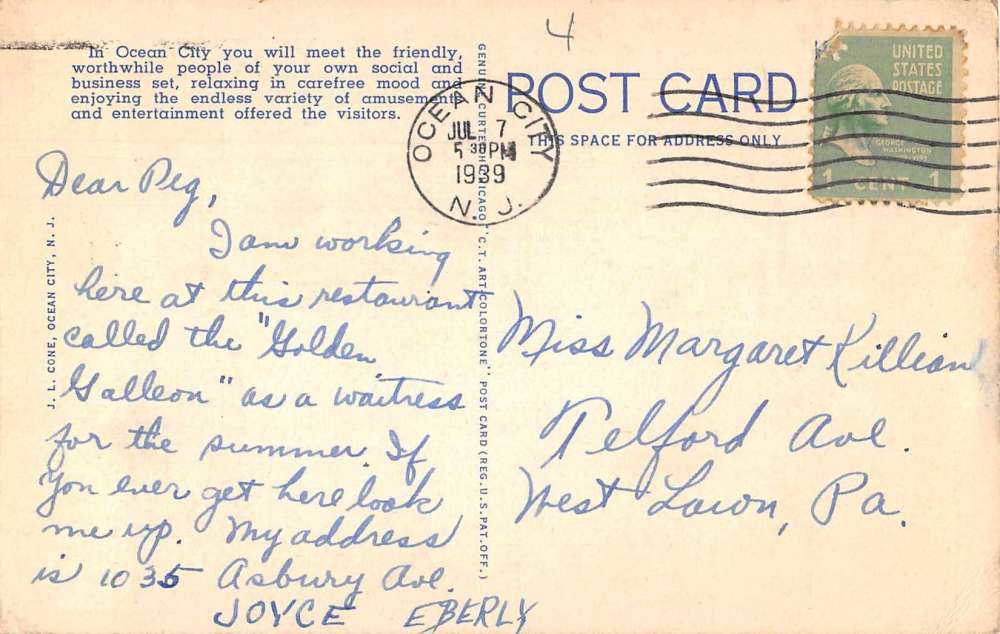 In Ocean City you will meet the friendly,
worthwhile people of your own social and
business set, relaxing in carefree mood and
enjoying the endless variety of amusements
and entertainment offered the visitors.
4
POST CARD
THIS SPACE FOR ADDRESS ONLY
OCEAN CITY
JUL 7
5 30 PM
1939
N. J.
UNITED
STATES
POSTAGE
GEORGE
WASHINGTON
1 CENT 1
Dear Peg,
I am working
here at this restaurant
called the "Golden
Galleon" as a waitress
for the summer. If
you ever get here look
me up. My address
is 1035 Asbury Ave.
JOYCE EBERLY
Miss Margaret Killian
Telford Ave.
West Lawn, Pa.
J. L. CONE, OCEAN CITY, N. J.
GENUINE CURTEICH-CHICAGO "C.T. ART-COLORTONE" POST CARD (REG. U.S. PAT. OFF.)